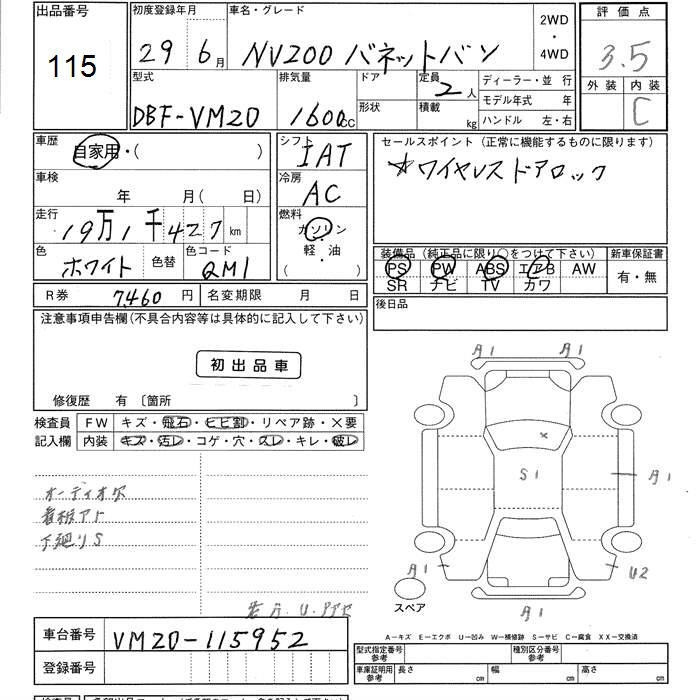 出品番号
115
初度登録年月
29 6月
車名・グレード
NV200 バネットバン
2WD
・
4WD
評価点
3.5
外装 内装
C
型式
DBF-VM20
排気量
1600cc
ドア
形状
定員
2人
積載
kg
ディーラー・並 行
モデル年式 年
ハンドル 左・右
車歴
自家用・( )
シフト
IAT
セールスポイント(正常に機能するものに限ります)
☆ワイヤレスドアロック
車検
年 月(日)
冷房
AC
走行
19万1千427km
燃料
ガソリン
・
軽・油
( )
色
ホワイト
色替
色コード
QM1
装備品(純正品に限り○をつけて下さい)
PS PW ABS エアB AW
SR ナビ TV カワ
新車保証書
有・無
R券 7,460円
名変期限 月 日
後日品
注意事項申告欄(不具合内容等は具体的に記入して下さい)
初出品車
修復歴 有〔箇所 〕
検査員
記入欄
FW キズ・飛石・ヒビ割・リペア跡・×要
内装 キズ・汚レ・コゲ・穴・スレ・キレ・破レ
オーディオ欠
看板アト
下廻りS
A1 A1
×
S1
A1
A1
U2
A1
スペア
車台番号
VM20-115952
登録番号
A-キズ E-エクボ U-凹み W-補修跡 S-サビ C-腐食 XX-交換済
型式指定番号
参考
種別区分番号
参考
車庫証明用
参考
長さ cm
幅 cm
高さ cm